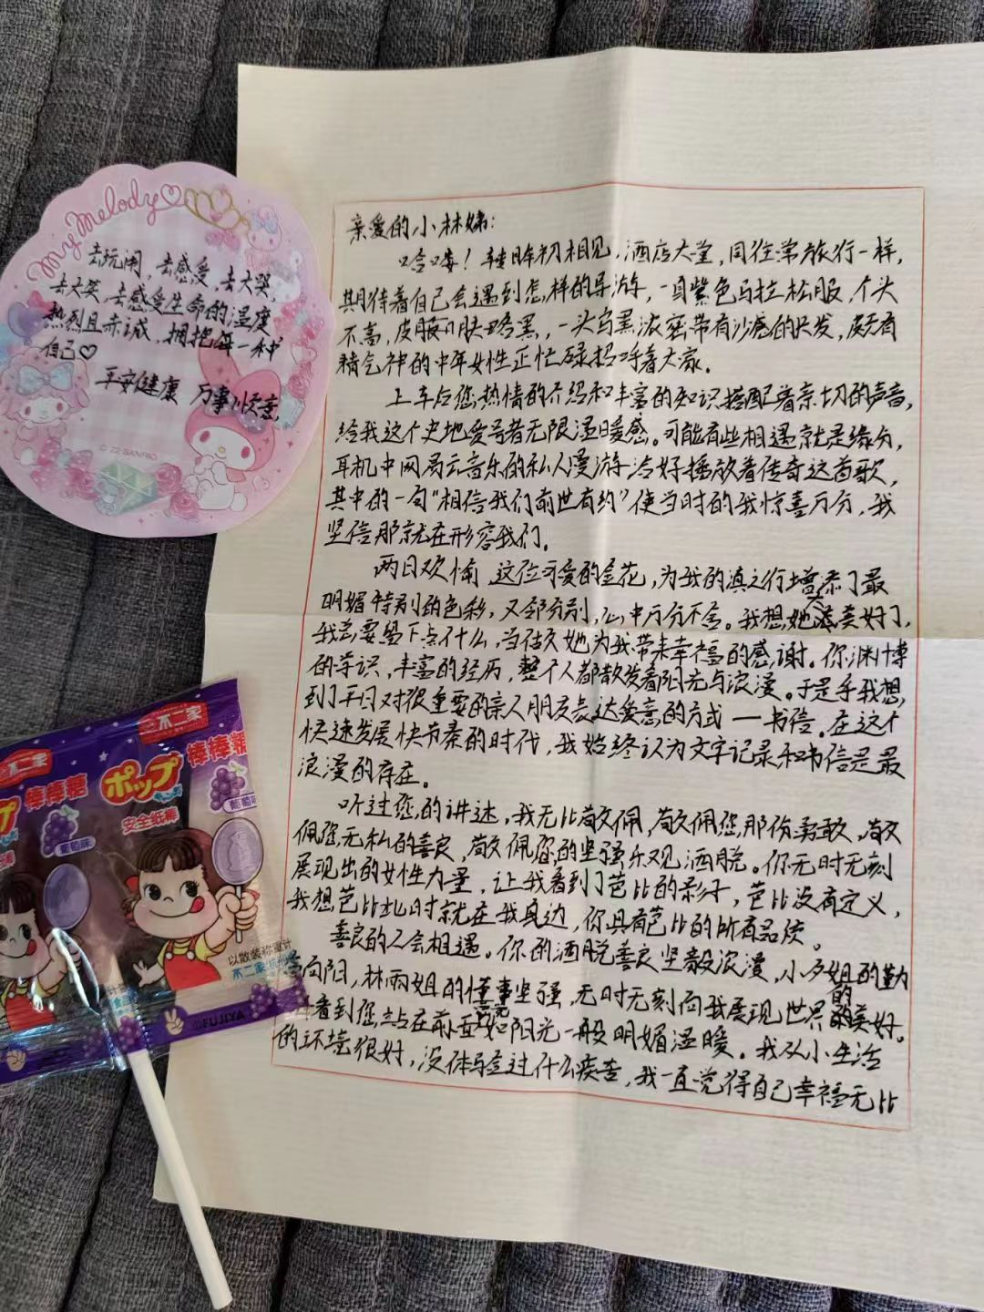 My Melody
去玩闹,去感受,去大哭,
去大笑,去感受生命的温度
热烈且赤诚,拥抱每一种
自己♡
平安健康 万事从意
© '22 SANRIO
亲爱的小林姊:
哈喽!转眸初相见,酒店大堂,同往常旅行一样,
期待着自己会遇到怎样的导游,一身紫色马拉松服,个头
不高,皮肤略黑,一头乌黑浓密带有沙感的头发,颇有
精气神的中年女性正忙碌招呼着大家。
上车后您热情的介绍和丰富的知识搭配着亲切的声音,
给我这个史地爱好者无限温暖感。可能有些相遇就是缘分,
耳机中网易云音乐的私人漫游恰好播放着传奇这首歌,
其中的一句"相信我们前世有约"使当时的我惊喜万分,我
坚信那就在形容我们。
两日欢愉,这位可爱的金花,为我的滇之行增添了最
明媚特别的色彩,又邻分别,心中万分不舍。我想,她太美好了,
我总要留下点什么,当做她为我带来幸福的感谢。你渊博
的学识,丰富的经历,整个人都散发着阳光与浪漫。于是乎我想,
到了平日对很重要的亲人朋友表达爱意的方式——书信。在这个
快速发展快节奏的时代,我始终认为文字记录和书信是最
浪漫的存在。
听过您的讲述,我无比敬佩,敬佩您那份勇敢,敬
佩您无私的善良,敬佩您的坚强乐观洒脱。你无时无刻
展现出的女性力量,让我看到了芭比的影子,芭比没有定义,
我想芭比此时就在我身边,你具有芭比的所有品质。
善良的人会相遇。你的洒脱善良坚毅浪漫,小多姐的勤
向阳,林雨姐的懂事坚强,无时无刻向我展现世界的美好。
看到您站在前面宛如阳光一般明媚温暖。我从小生活
的环境很好,没体会过什么疾苦,我一直觉得自己幸福无比
不二家
棒棒糖
ポップ
葡萄味
安全纸棒
不二家
棒棒糖
葡萄味
以散装称重计
不二家
©FUJIYA